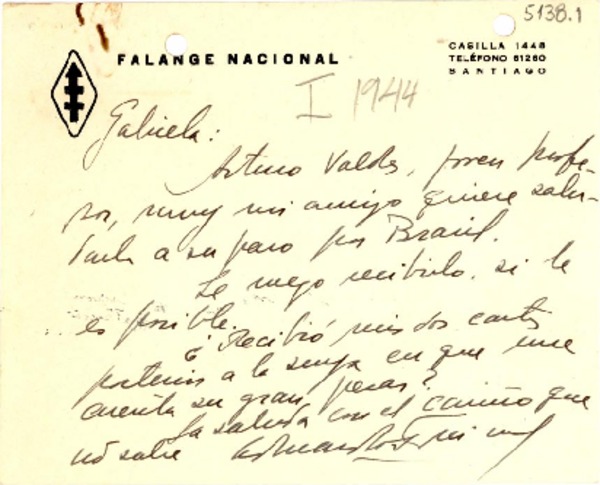 5138.1
FALANGE NACIONAL
CASILLA 1448
TELÉFONO 61260
SANTIAGO
I 1944
Gabriela:
Arturo Valdes, joven profe-
sor, muy mi amigo quiere salu-
darla a su paso por Brasil.
Le ruego recibirlo, si le
es posible.
¿Recibió mis dos cartas
posteriores a la suya en que me
cuenta su gran pesar?
La saluda con el cariño que
Ud sabe